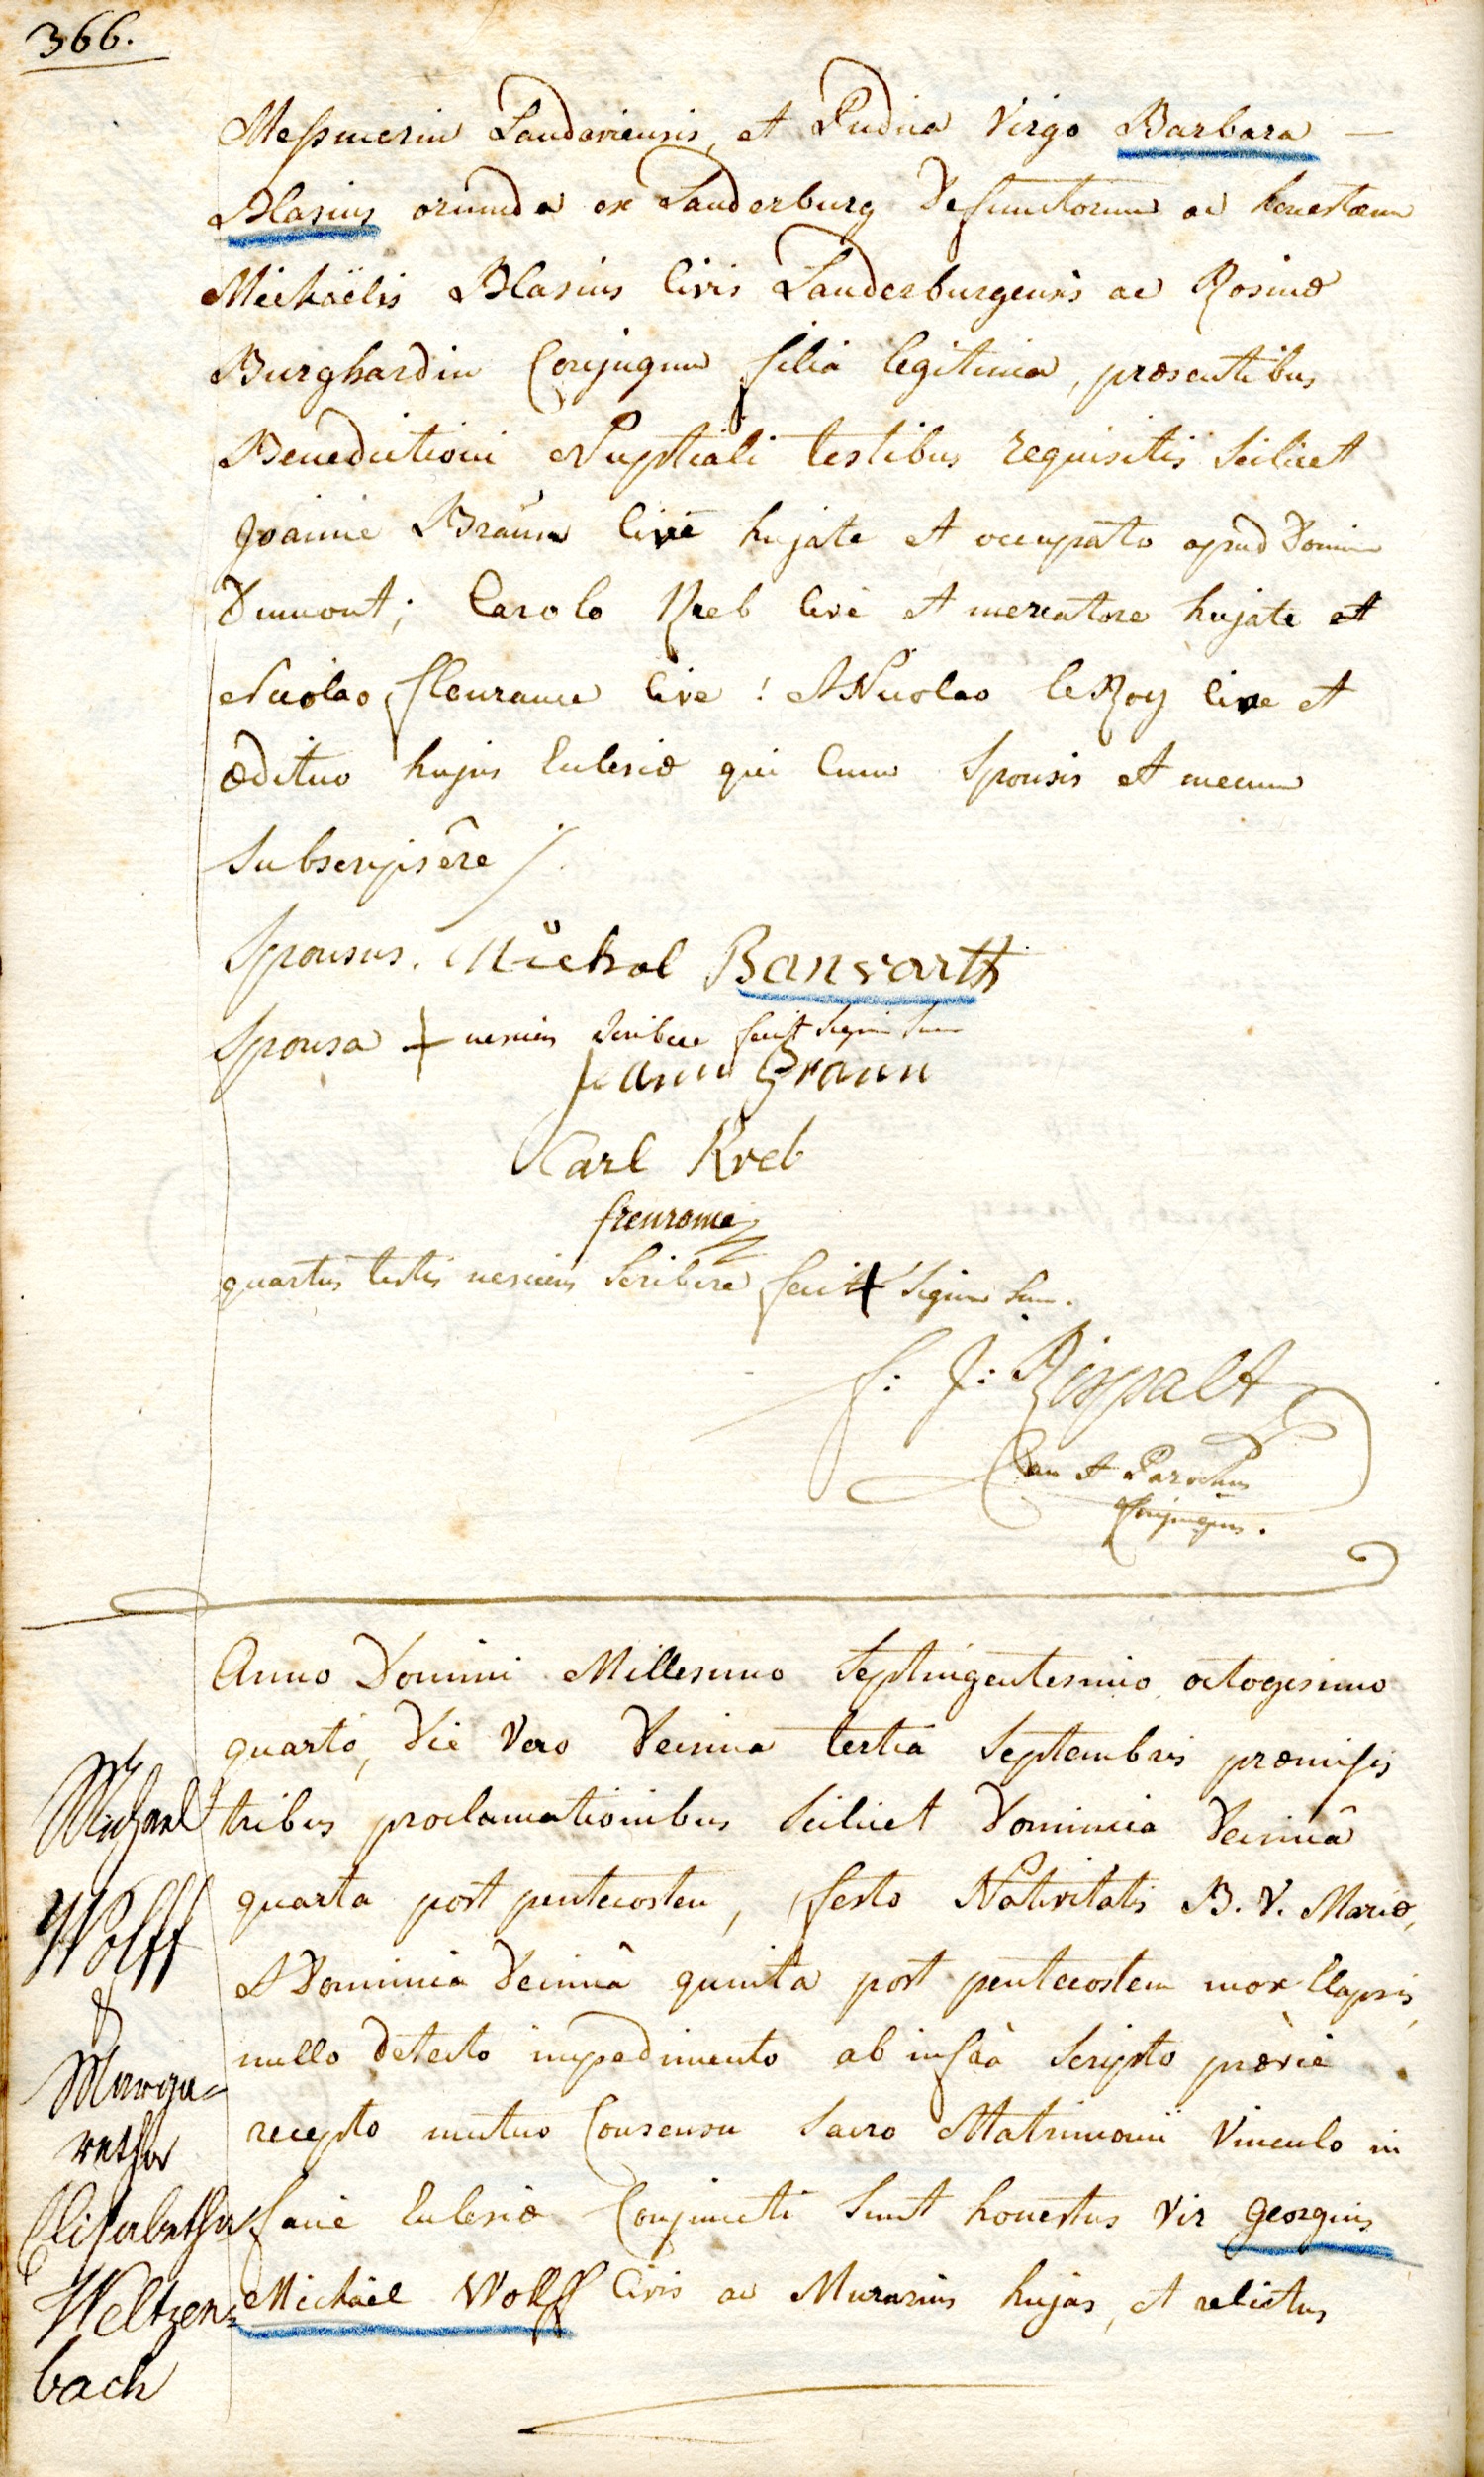 366.
Messmerin Landaviensis, et Pudica Virgo Barbara —
Blasius oriunda ex Lauderburg defunctorum ac honestorum
Michaëlis Blasius Civis Lauderburgensis ac Rosinæ
Burghardin Conjugum filia legitima, præsentibus
Benedictioni Nuptiali testibus requisitis scilicet
Joanne Braün Cive hujate et occupato apud Domin
Dumont; Carolo Kreb Cive et mercatore hujate et
Nicolao fleurance Cive! et Nicolao le Roy Cive et
ædituo hujus Ecclesiæ qui Cum Sponsis et mecum
Subscripsêre /.
Sponsus. Michal Banvarth
Sponsa + nesciens scribere fecit signum suum
Joann Braun
Karl Kreb
quartus testis nesciens Scribere fecit + Signum suum.
f: J: Rispalt
Can et Parochus
Anno Domini Millesimo Septingentesimo octogesimo
quarto, Die Vero Decima tertia Septembris præmissis
tribus proclamationibus Scilicet Dominica Decimâ
quarta post pentecosten, festo Nativitatis B. V. Mariæ,
et Dominica Decimâ quinta post pentecostem mox Elapsis,
nullo detecto impedimento ab infrà Scripto prævie
recepto mutuo Consensu Sacro Matrimonii Vinculo in
facie Ecclesiæ Conjuncti Sunt honestus Vir Georgius
Michäel Wolff Civis ac Murarius hujas, et relictus
Michael
Wolff
&
Marga=
retha
Elisabetha
Weltzen=
bach